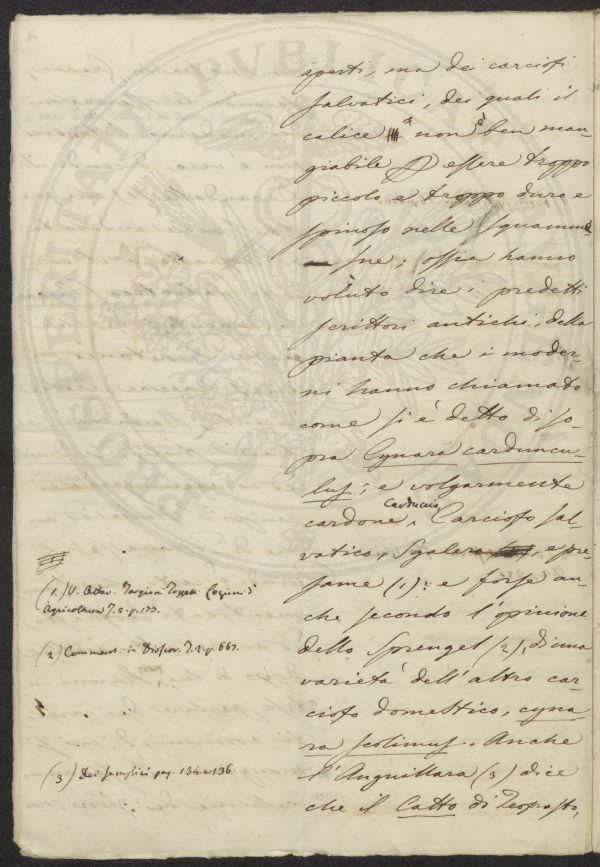 aperti, ma dei carciofi
salvatici, dei quali il
calice non è ben man-
giabile essere troppo
piccolo e troppo duro e
spinoso nelle squamme
sue; ossia hanno
voluto dire i predetti
scrittori antichi, della
pianta che i moder-
ni hanno chiamato
come si è detto di so-
pra Cynara carduncu-
lus; e volgarmente
cardone, Carduccio, Carciofo sal-
vatico, Sgalera, e pre-
same (1): e forse an-
che secondo l'opinione
dello Sprengel (2), di una
varietà dell'altro car-
ciofo domestico, cyna-
ra scolimus. Anche
l'Anguillara (3) dice
che il Catto di Teofrasto,
(1) V. Ottav. Targioni Tozzetti Lezioni d'
Agricoltura T. 2. p. 173.
(2) Comment. in Dioscor. T. 2. p. 667.
(3) Dei semplici pag. 134. e 136.
PROSPERITATI PUBLICAE